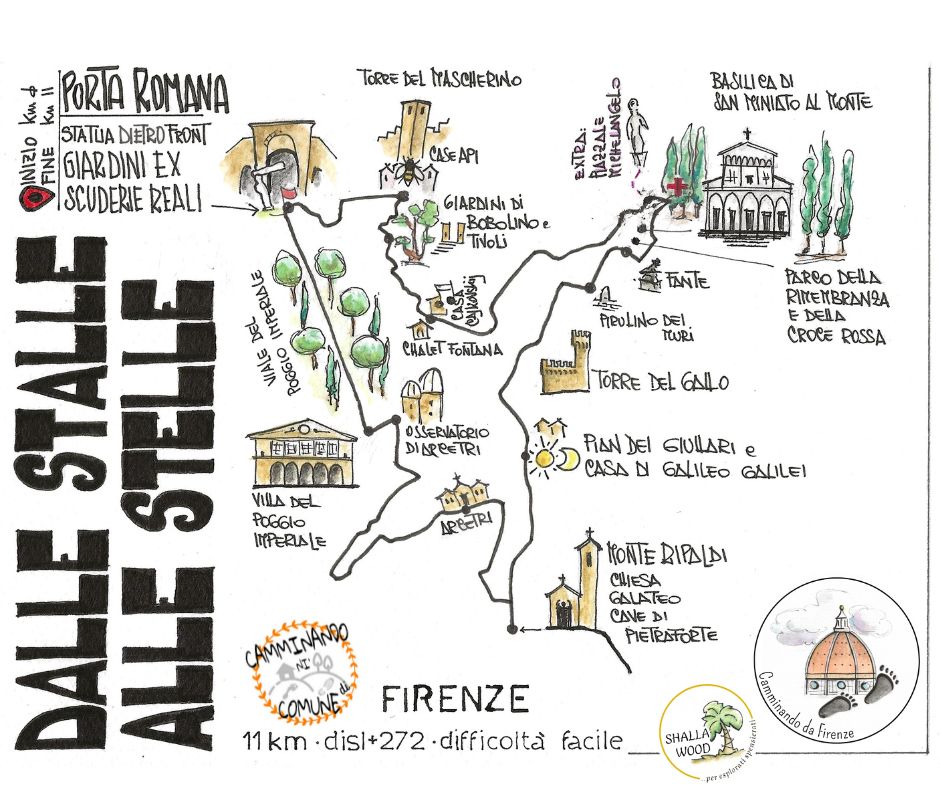 INIZIO Km 0
FINE Km 11
PORTA ROMANA
STATUA DIETRO FRONT
GIARDINI EX
SCUDERIE REALI
TORRE DEL MASCHERINO
CASE API
EXTRA:
PIAZZALE
MICHELANGELO
BASILICA DI
SAN MINIATO AL MONTE
GIARDINI DI
BOBOLINO e
TIVOLI
VIALE DEL
POGGIO IMPERIALE
CASA
CHALET FONTANA
FANTE
PARCO DELLA
RIMEMBRANZA
E DELLA
CROCE ROSSA
DEI
TORRE DEL GALLO
OSSERVATORIO
DI ARCETRI
PIAN DEI GIULLARI e
CASA DI GALILEO GALILEI
VILLA DEL
POGGIO
IMPERIALE
ARCETRI
MONTE RIPALDI
CHIESA
GALATEO
CAVE DI
PIETRAFORTE
DALLE STALLE
ALLE STELLE
CAMMINANDO
NI'
COMUNE di
FIRENZE
11 km · disl+272 · difficoltà facile
SHALLA
WOOD
...per esplorati spensierati
Camminando da Firenze